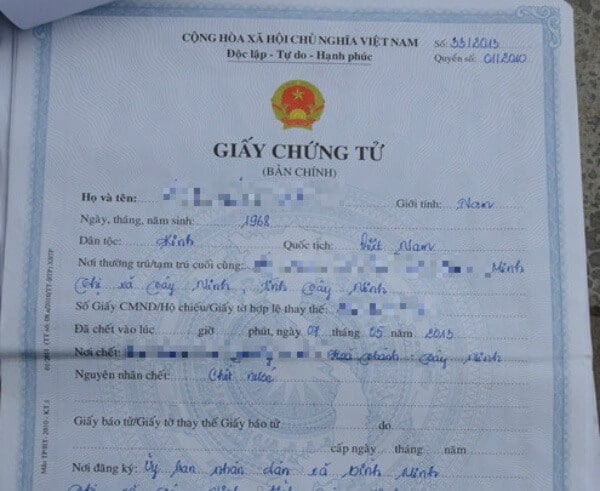 CỘNG HÒA XÃ HỘI CHỦ NGHĨA VIỆT NAM
Độc lập - Tự do - Hạnh phúc
Số: 33/2013
Quyển số: 01/2010
GIẤY CHỨNG TỬ
(BẢN CHÍNH)
Họ và tên: Giới tính: Nam
Ngày, tháng, năm sinh: 1968
Dân tộc: Kinh Quốc tịch: Việt Nam
Nơi thường trú/tạm trú cuối cùng: Ninh
thị xã Tây Ninh tỉnh Tây Ninh
Số Giấy CMND/Hộ chiếu/Giấy tờ hợp lệ thay thế:
Đã chết vào lúc giờ phút, ngày 07 tháng 05 năm 2013
Nơi chết: Tây Ninh
Nguyên nhân chết: Chết nước
Giấy báo tử/Giấy tờ thay thế Giấy báo tử do
cấp ngày tháng năm
Nơi đăng ký: Ủy ban nhân dân xã Bình Minh